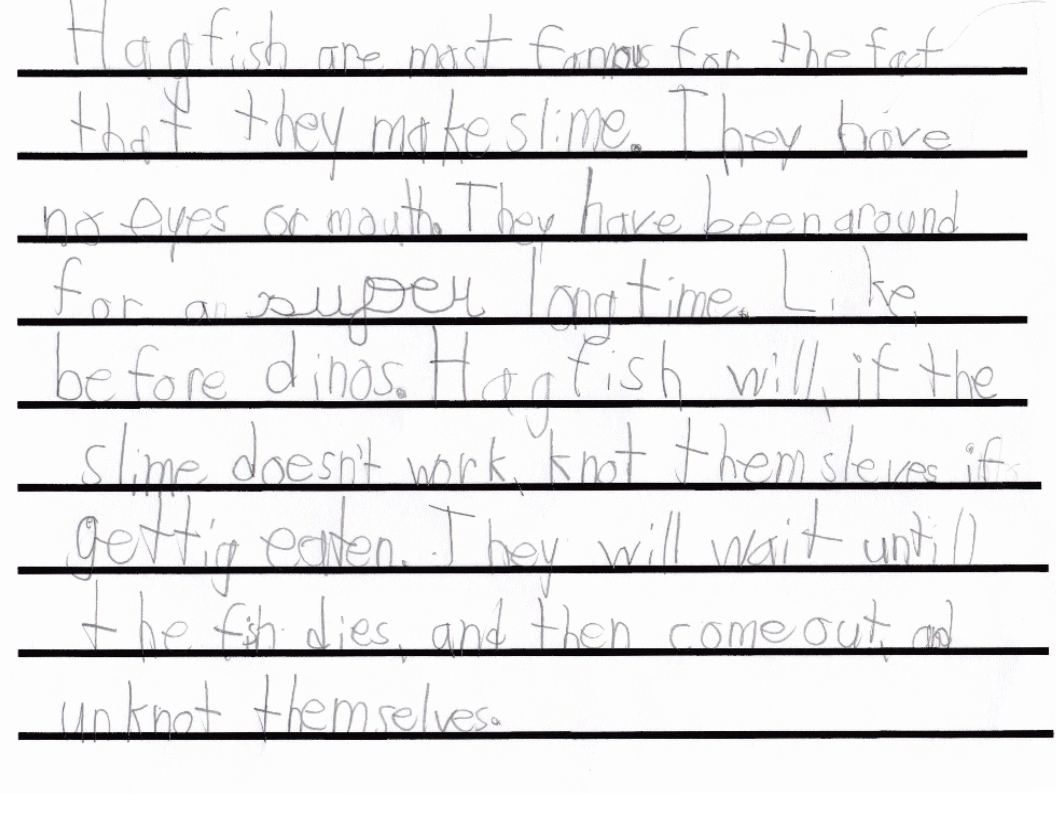 Hagfish are most famous for the fact
that they make slime. They have
no eyes or mouth. They have been around
for a super long time. Like,
before dinos. Hagfish will, if the
slime doesn't work, knot themsleves if
gettig eaten. They will wait untill
the fish dies, and then come out, and
unknot themselves.